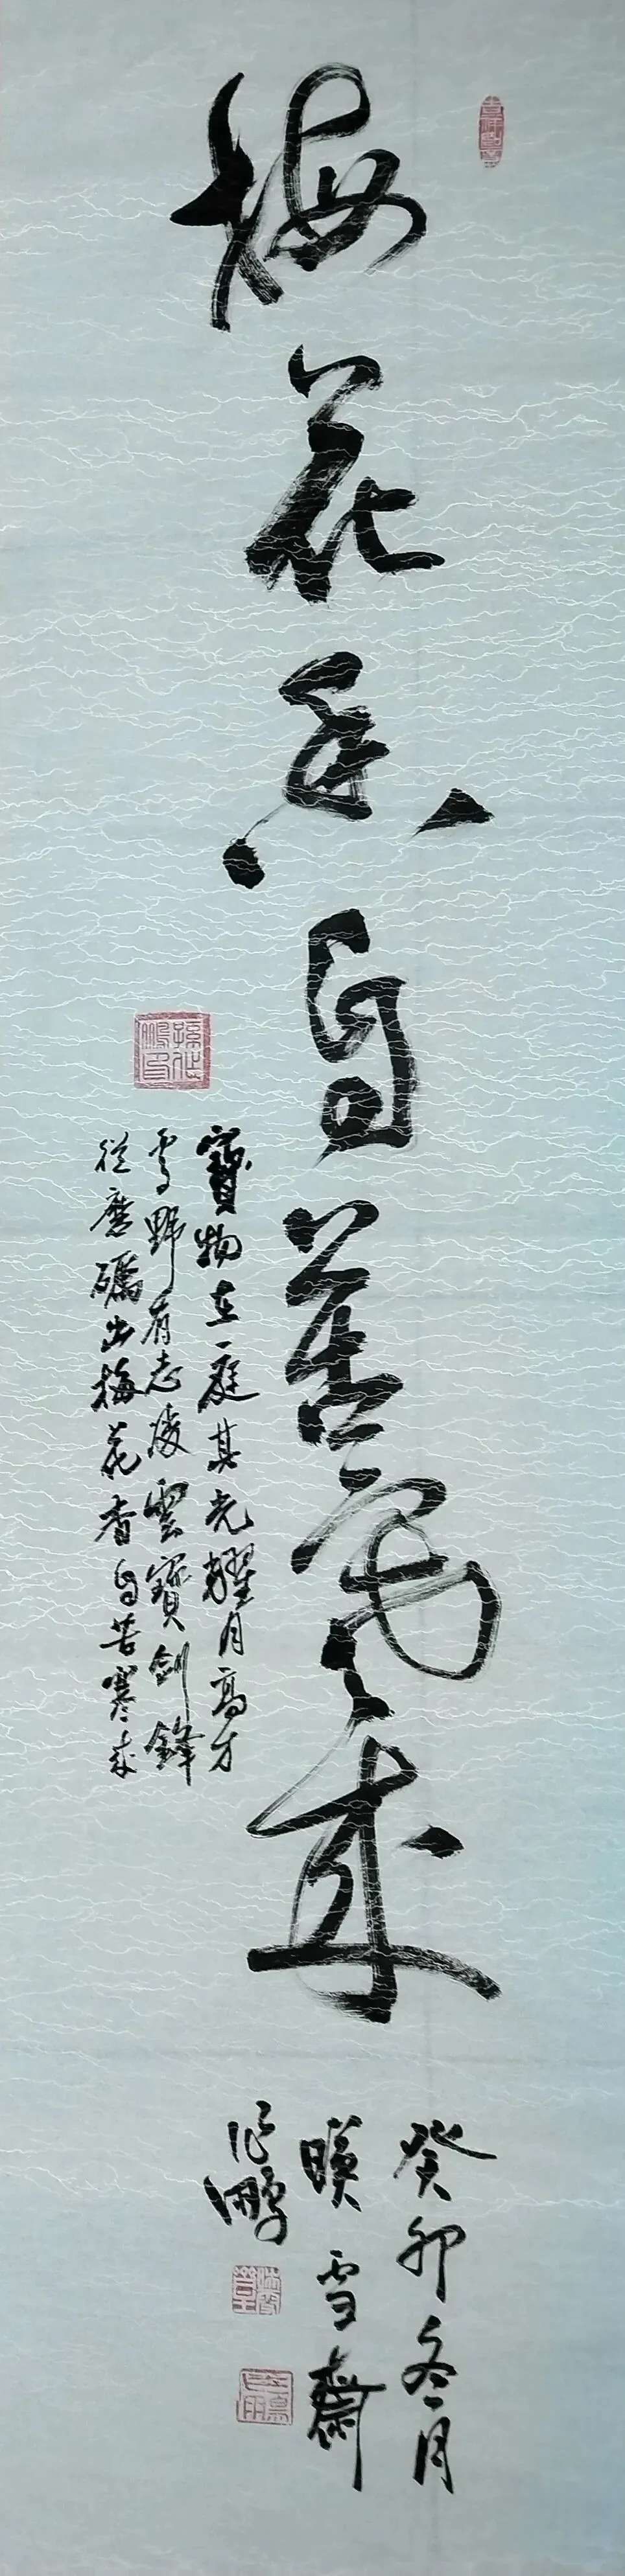 梅花香自苦寒来
寶物在一庭其光耀月高才
雪野有志凌雲寶劍鋒
從磨礪出梅花香自苦寒来
癸卯冬月
暎雪齋
鵬